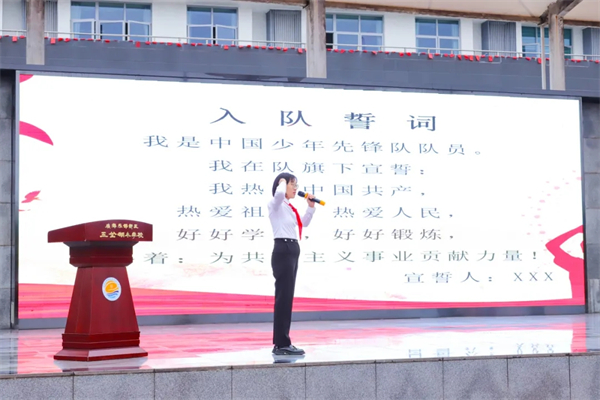 入队誓词
我是中国少年先锋队队员。
我在队旗下宣誓：
我热 中国共产，
热爱祖 热爱人民，
好好学 好好锻炼，
着：为共 主义事业贡献力量！
宣誓人：XXX